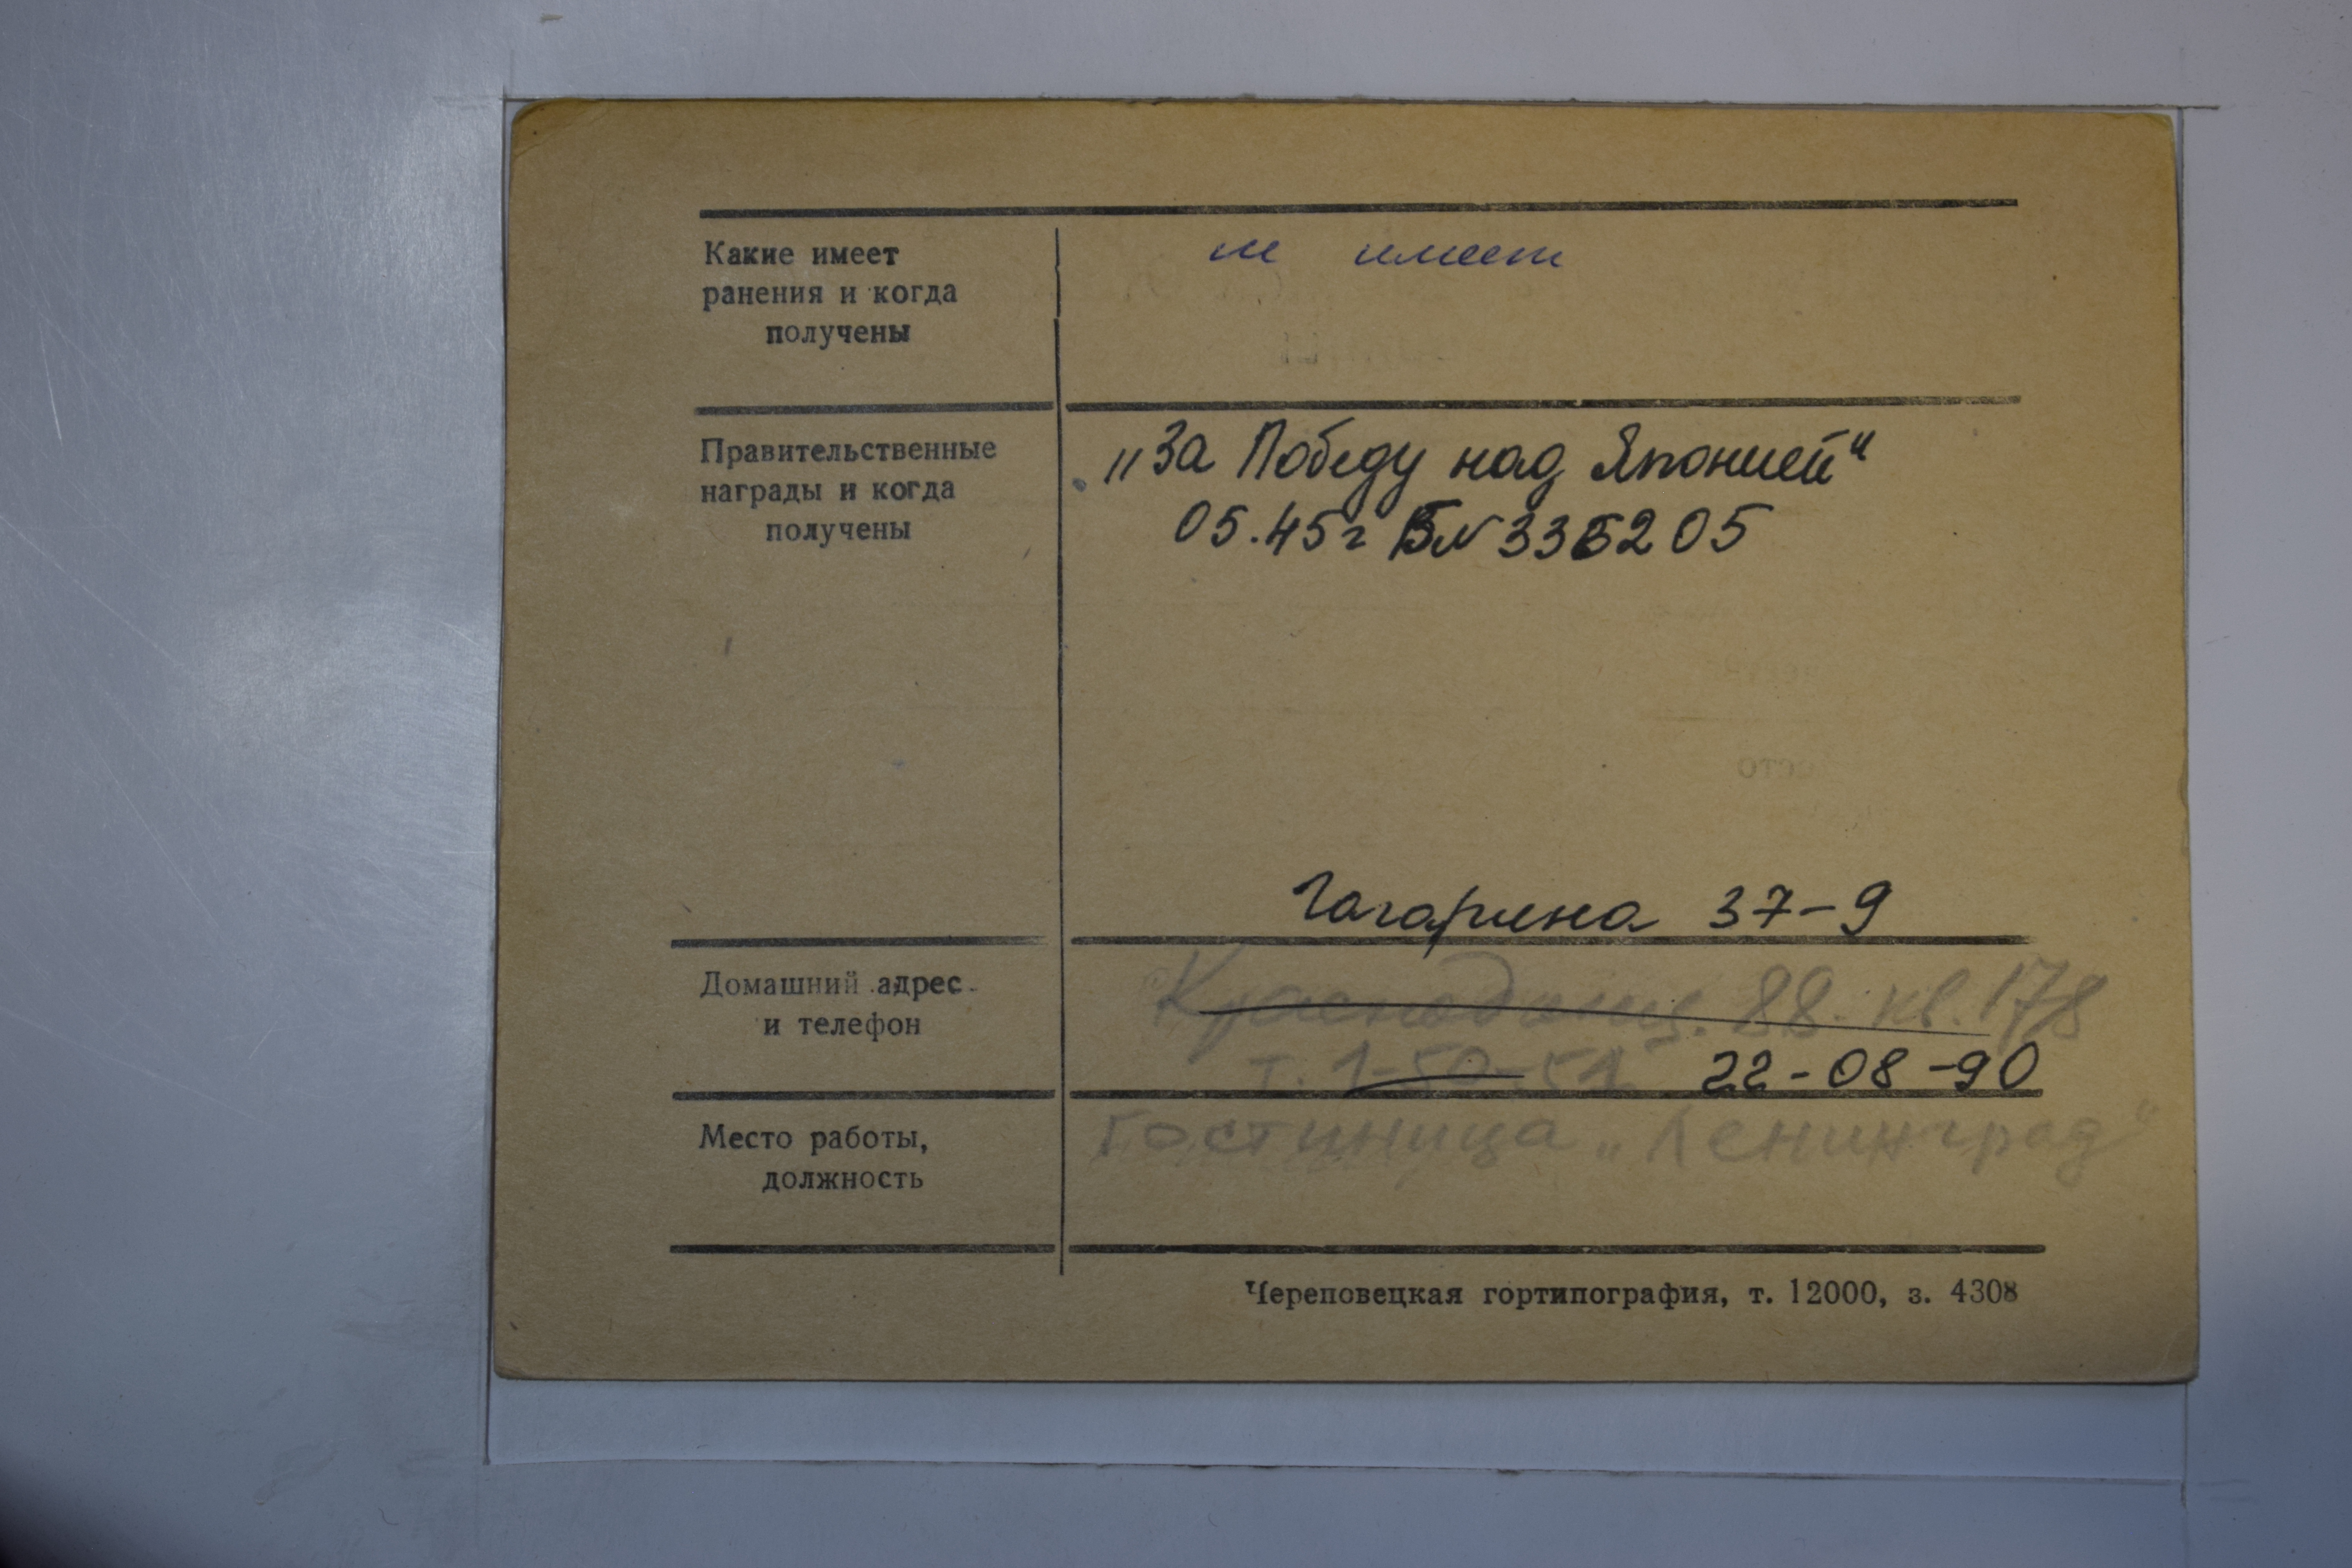 Какие имеет
ранения и когда
получены
не имеет
Правительственные
награды и когда
получены
„За Победу над Японией“
05.45г Б№335205
Гагарина 37-9
Домашний адрес
и телефон
Краснодонц. 88. кв. 178
т. 1-50-51 22-08-90
Место работы,
должность
гостиница „Ленинград“
Череповецкая гортипография, т. 12000, з. 4308